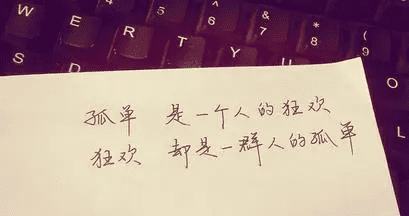 $ 5 % 6 & 7 * 8 ( 9
W E R T Y U
S D
孤单 是一个人的狂欢
狂欢 却是一群人的孤单